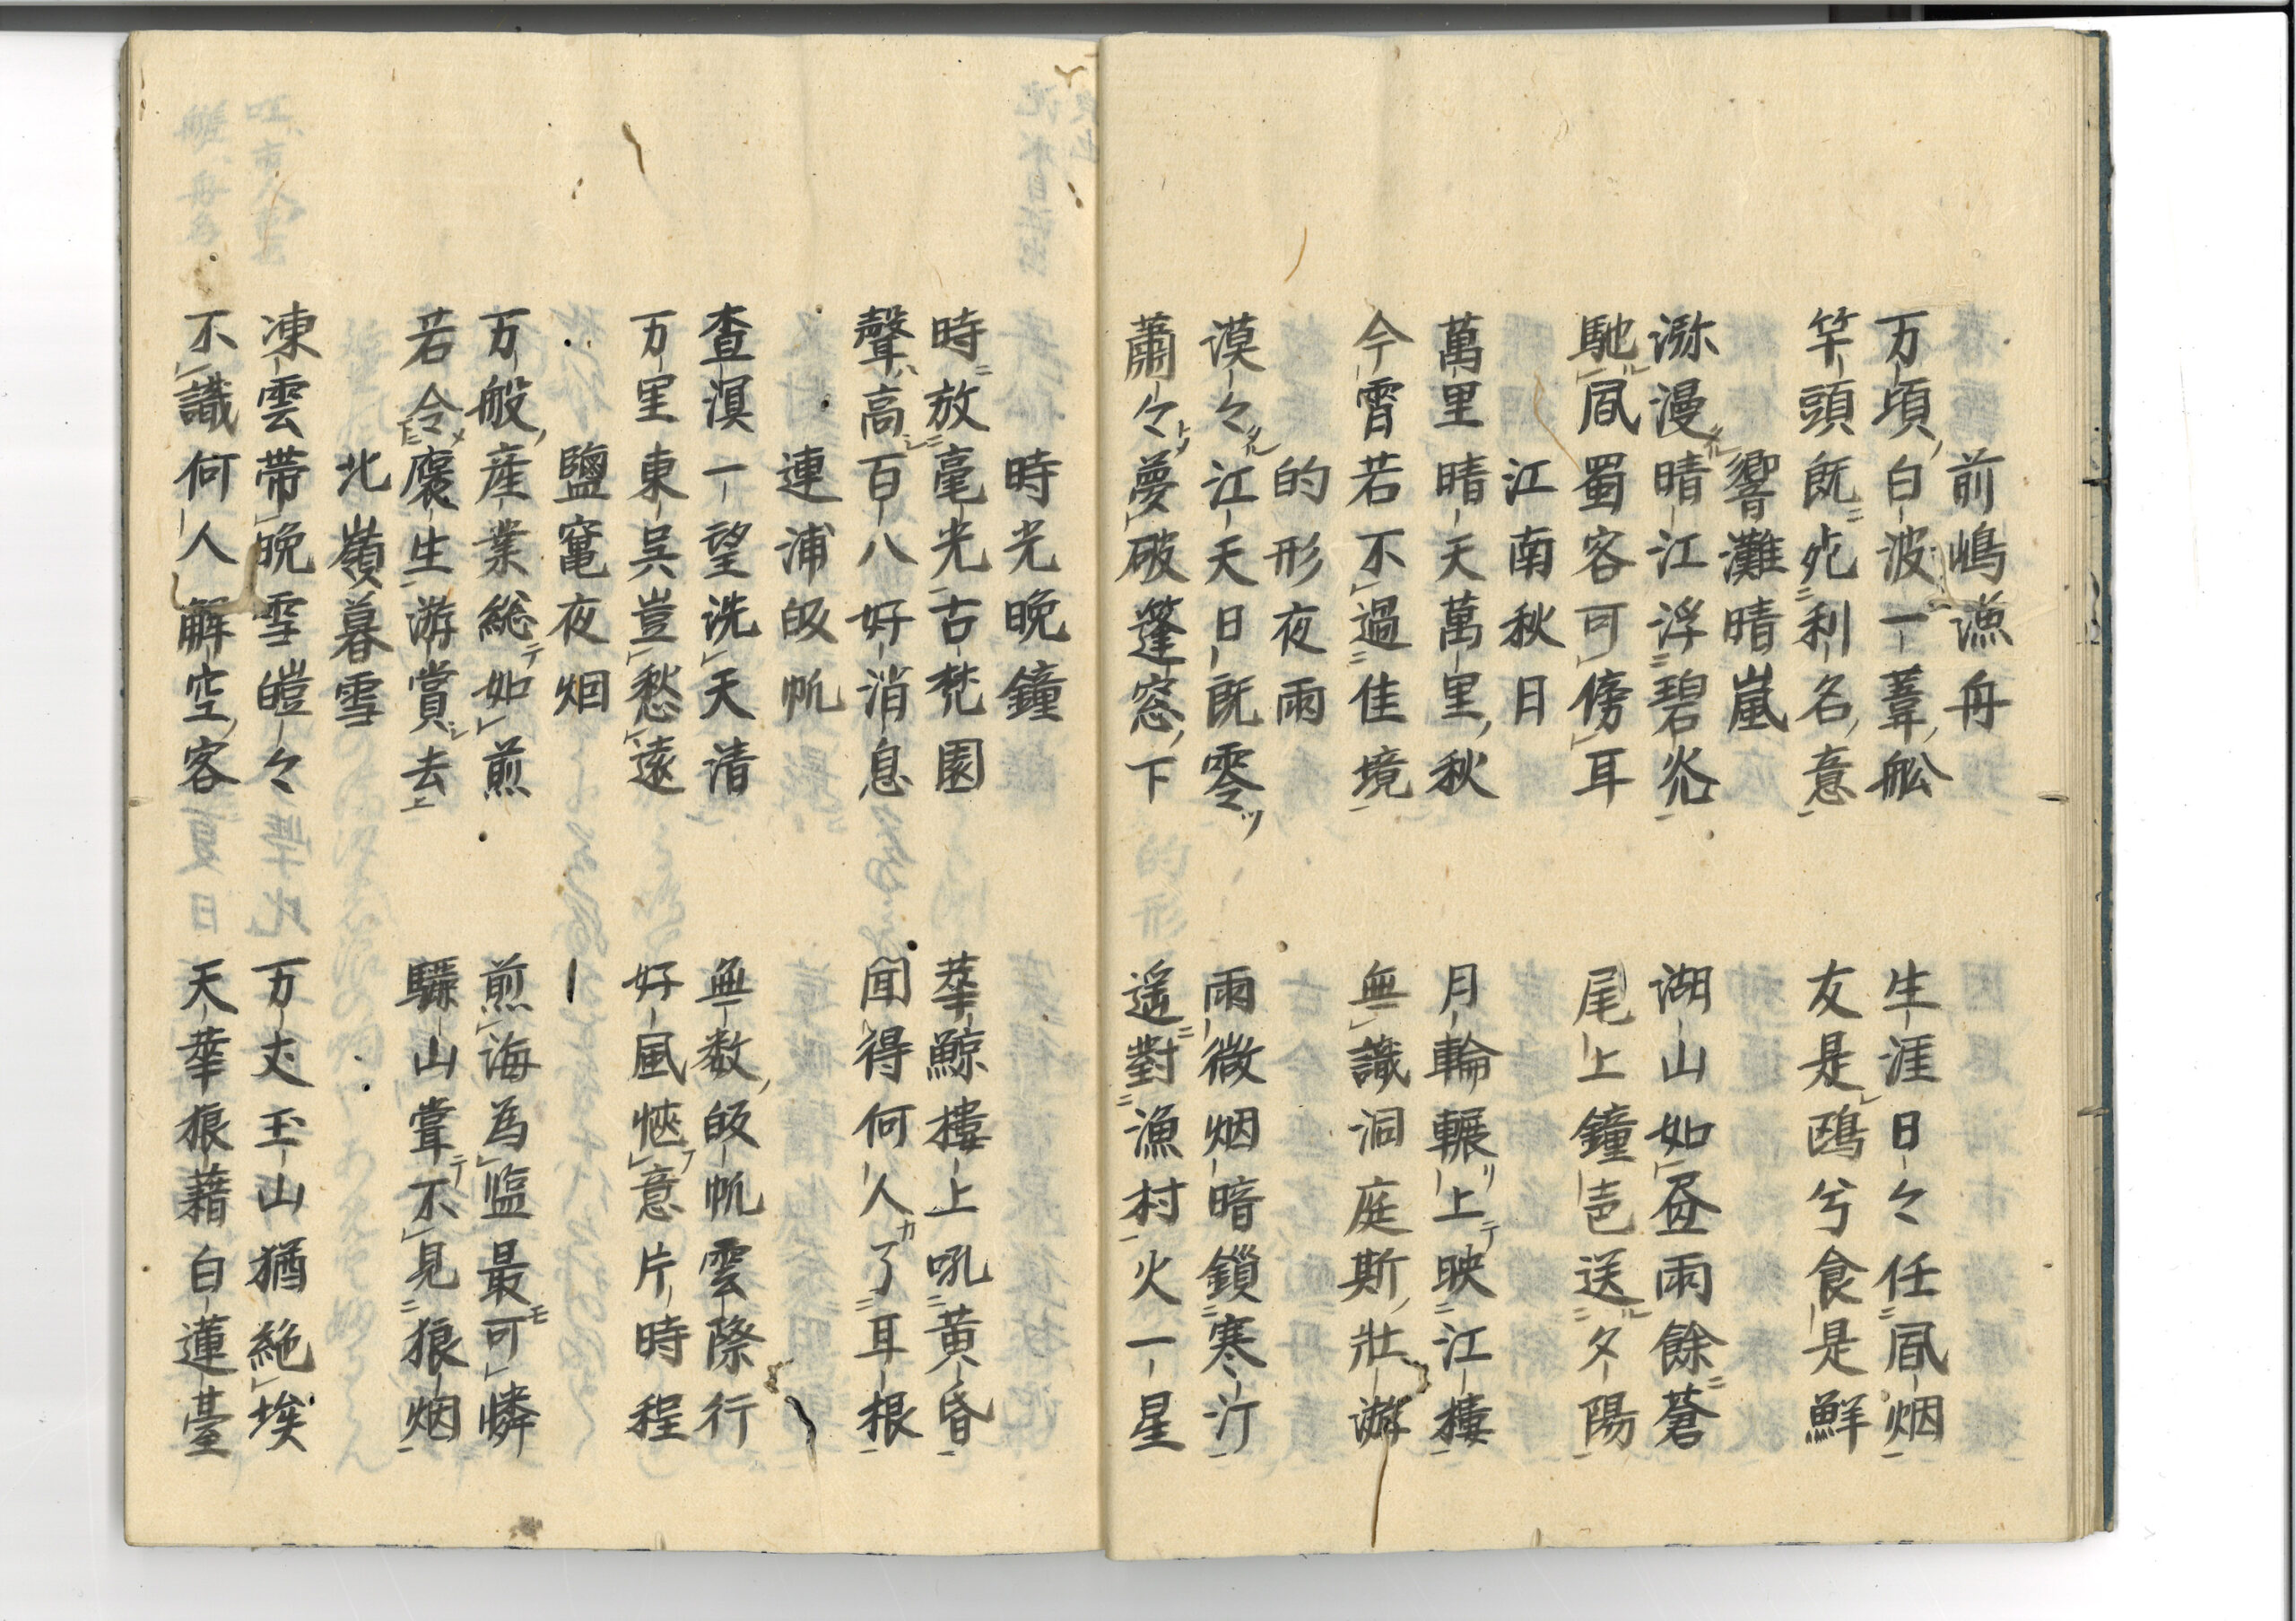 前嶋漁舟
万頃白波一葦舩　生涯日々任凬烟
竿頭既死利名意　友是鴎兮食是鮮
響灘晴嵐
㳽漫晴江浮碧光　湖山如画雨餘蒼
馳凬蜀客可傍耳　尾上鐘声送夕陽
江南秋日
萬里晴天萬里秋　月輪輾上映江樓
今霄若不過佳境　無識洞庭斯壯游
的形夜雨
漠々江天日既零　雨微烟暗鎖寒汀
蕭々夢破篷窓下　遥對漁村火一星
時光晩鐘
時放毫光古梵園　華鯨樓上吼黄昏
聲高百八好消息　聞得何人了耳根
連浦皈帆
查溟一望洗天清　無数皈帆雲際行
万里東呉豈愁遠　好風愜意片時程
鹽竃夜烟
万般産業総如煎　煎海為塩最可憐
若令褒生游賞去　驪山甞不見狼烟
北嶺暮雪
凍雲帯晩雪皚々　万丈玉山猶絶埃
不識何人解空客　天華狼藉白蓮臺